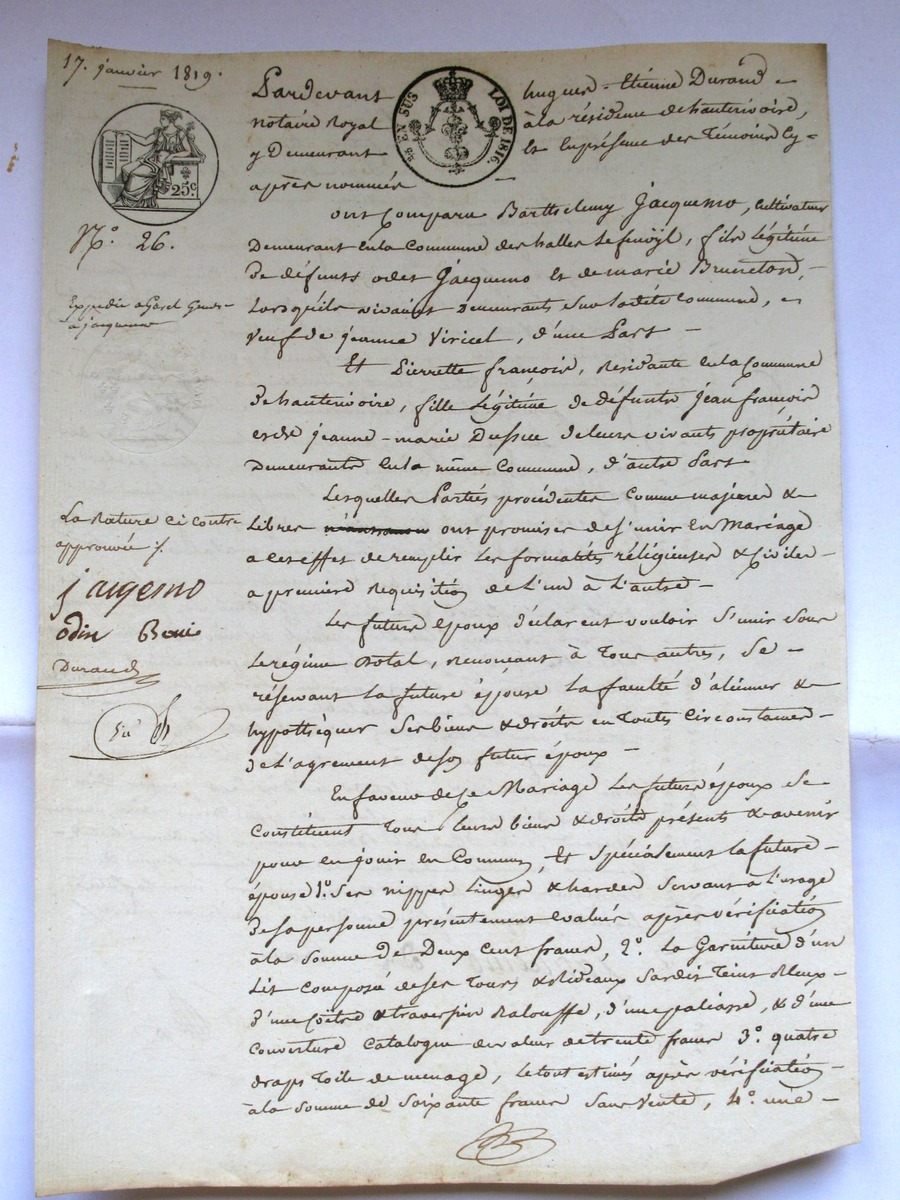 17. janvier 1819.
Pardevant hugues-Etienne Durand
notaire Royal à la résidence de hauterivoire,
y Demeurant Et En présence des Témoins Cy-
après nommés
25 EN SUS LOI DE 1816.
25c
N.° 26.
ont Comparu Barthelemy Jacquemo, Cultivateur
Demeurant en la Commune des halles Le fenöyl, fils Légitime
De défunts odet Jacquemo Et de marie Bruneton,
Lorsqu'ils vivaient Demeurants Sur la dite Commune,
veuf de jeanne Viricel, d'une Part
Expedié a
a jacquemo
Et Pierrette françois, Residante en la Commune
De hauterivoire, fille Légitime de défunts jean françois
et de jeanne-marie Dussuc de leurs vivants propriétaire
Demeurants en la même Commune, d'autre Part
Lesquelles Parties procédentes Comme majeures &
Libres ont promises de S'unir En Mariage
a cet effet de remplir Les formalités réligieuses & Civiles
a premiere Requisition de L'une à L'autre
La Rature ci contre
approuvée ./.
jaqemo
odin
Durand
Les futurs Epoux déclarent vouloir S'unir Sous
Le régime Dotal, renonçant à Tous autres, Se
réservant La future épouse La faculté d'aliéner &
hypothéquer Ses biens & droits en Toutes Circonstances
De L'agrément de son futur époux
En faveur de Ce Mariage Les futurs époux Se
Constituent Tous Leurs biens & droits présents & avenir
pour en jouir en Commun, Et Spécialement La future
épouse 1.° Ses nippes Linges & hardes Servant à L'usage
De Sa personne présentement Evalués après vérification
à la Somme de Deux Cent francs, 2.° La Garniture d'un
Lit Composé de Ses Tours & Rideaux Sardis Teint Bleux
D'une Coëtre & traversin Balouffe, d'une paliasse, & d'une
Couverture Catalogne de valeur de trente francs 3.° quatre
draps Toile de menage, Le tout estimés après vérification
à la Somme de Soixante francs Sans Vente, 4.° une